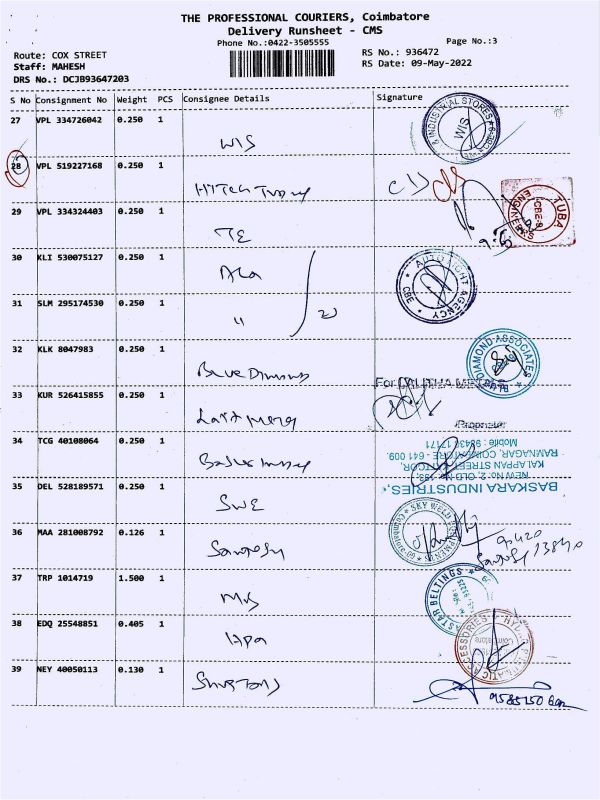 THE PROFESSIONAL COURIERS, Coimbatore
Delivery Runsheet - CMS
Phone No.:0422-3505555
Page No.:3
Route: COX STREET
RS No.: 936472
Staff: MAHESH
RS Date: 09-May-2022
DRS No.: DCJB93647203
S No Consignment No Weight PCS Consignee Details Signature
27 VPL 334726042 0.250 1
WIS
& INDUSTRIAL STORES
WIS
28 VPL 519227168 0.250 1
29 VPL 334324403 0.250 1
TE
TUBA
ENGINEERS
CBE-9
30 KLI 530075127 0.250 1
ALA
AUTO LIGHT AGENCY
CBE
31 SLM 295174530 0.250 1
"
32 KLK 8047983 0.250 1
DIAMOND ASSOCIATES
33 KUR 526415855 0.250 1
For LALITHA METALS
Proprietor
34 TCG 40108064 0.250 1
BASKARA INDUSTRIES,
NEW No: 2, OLD No: 193,
KALAPPAN STREET
RAMNAGAR, COIMBATORE - 641 009.
Mobile : 98436 17171
35 DEL 528189571 0.250 1
SWE
SKY WELD EQUIPMENTS
36 MAA 281008792 0.126 1
Santosh
90420
13840
37 TRP 1014719 1.500 1
STAR BELTINGS
38 EDQ 25548851 0.405 1
HPA
ACCESSORIES
39 NEY 40050113 0.130 1